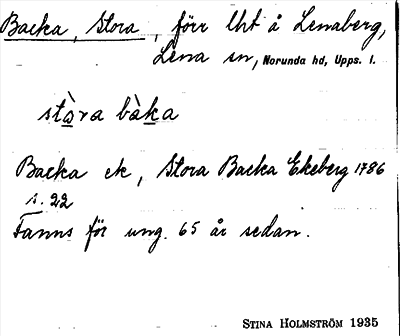 Backa, Stora, förr lht å Lenaberg,
Lena sn, Norunda hd, Upps. l.
stòra bàka
Backa ek, Stora Backa Ekeberg 1786
s. 22
Fanns för ung. 65 år sedan.
STINA HOLMSTRÖM 1935